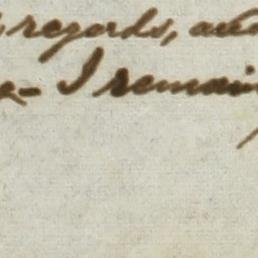 regards, and
I remain